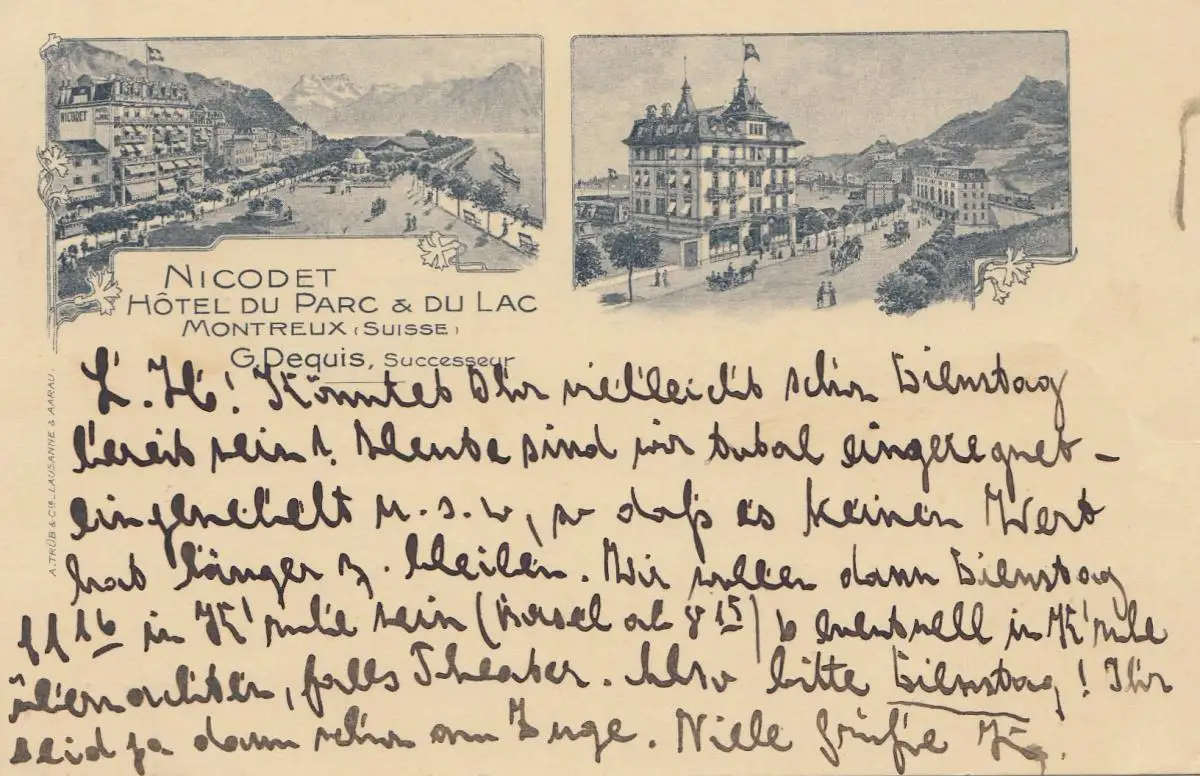 NICODET
NICODET
HÔTEL DU PARC & DU LAC
MONTREUX (SUISSE)
G. Dequis, Successeur
A. TRÜB & Cie. LAUSANNE & AARAU.
L. H! Könntet Ihr vielleicht schon Dienstag
bereit sein? Heute sind wir total eingeregnet –
eingenebelt u.s.w, so daß es keinen Wert
hat länger z. bleiben. Wir wollen dann Dienstag
11 16 in K'ruhe sein (Basel ab 8 15) & eventuell in K'ruhe
übernachten, falls Theater. Also bitte Dienstag! Ihr
seid ja dann schon am Zuge. Viele Grüße